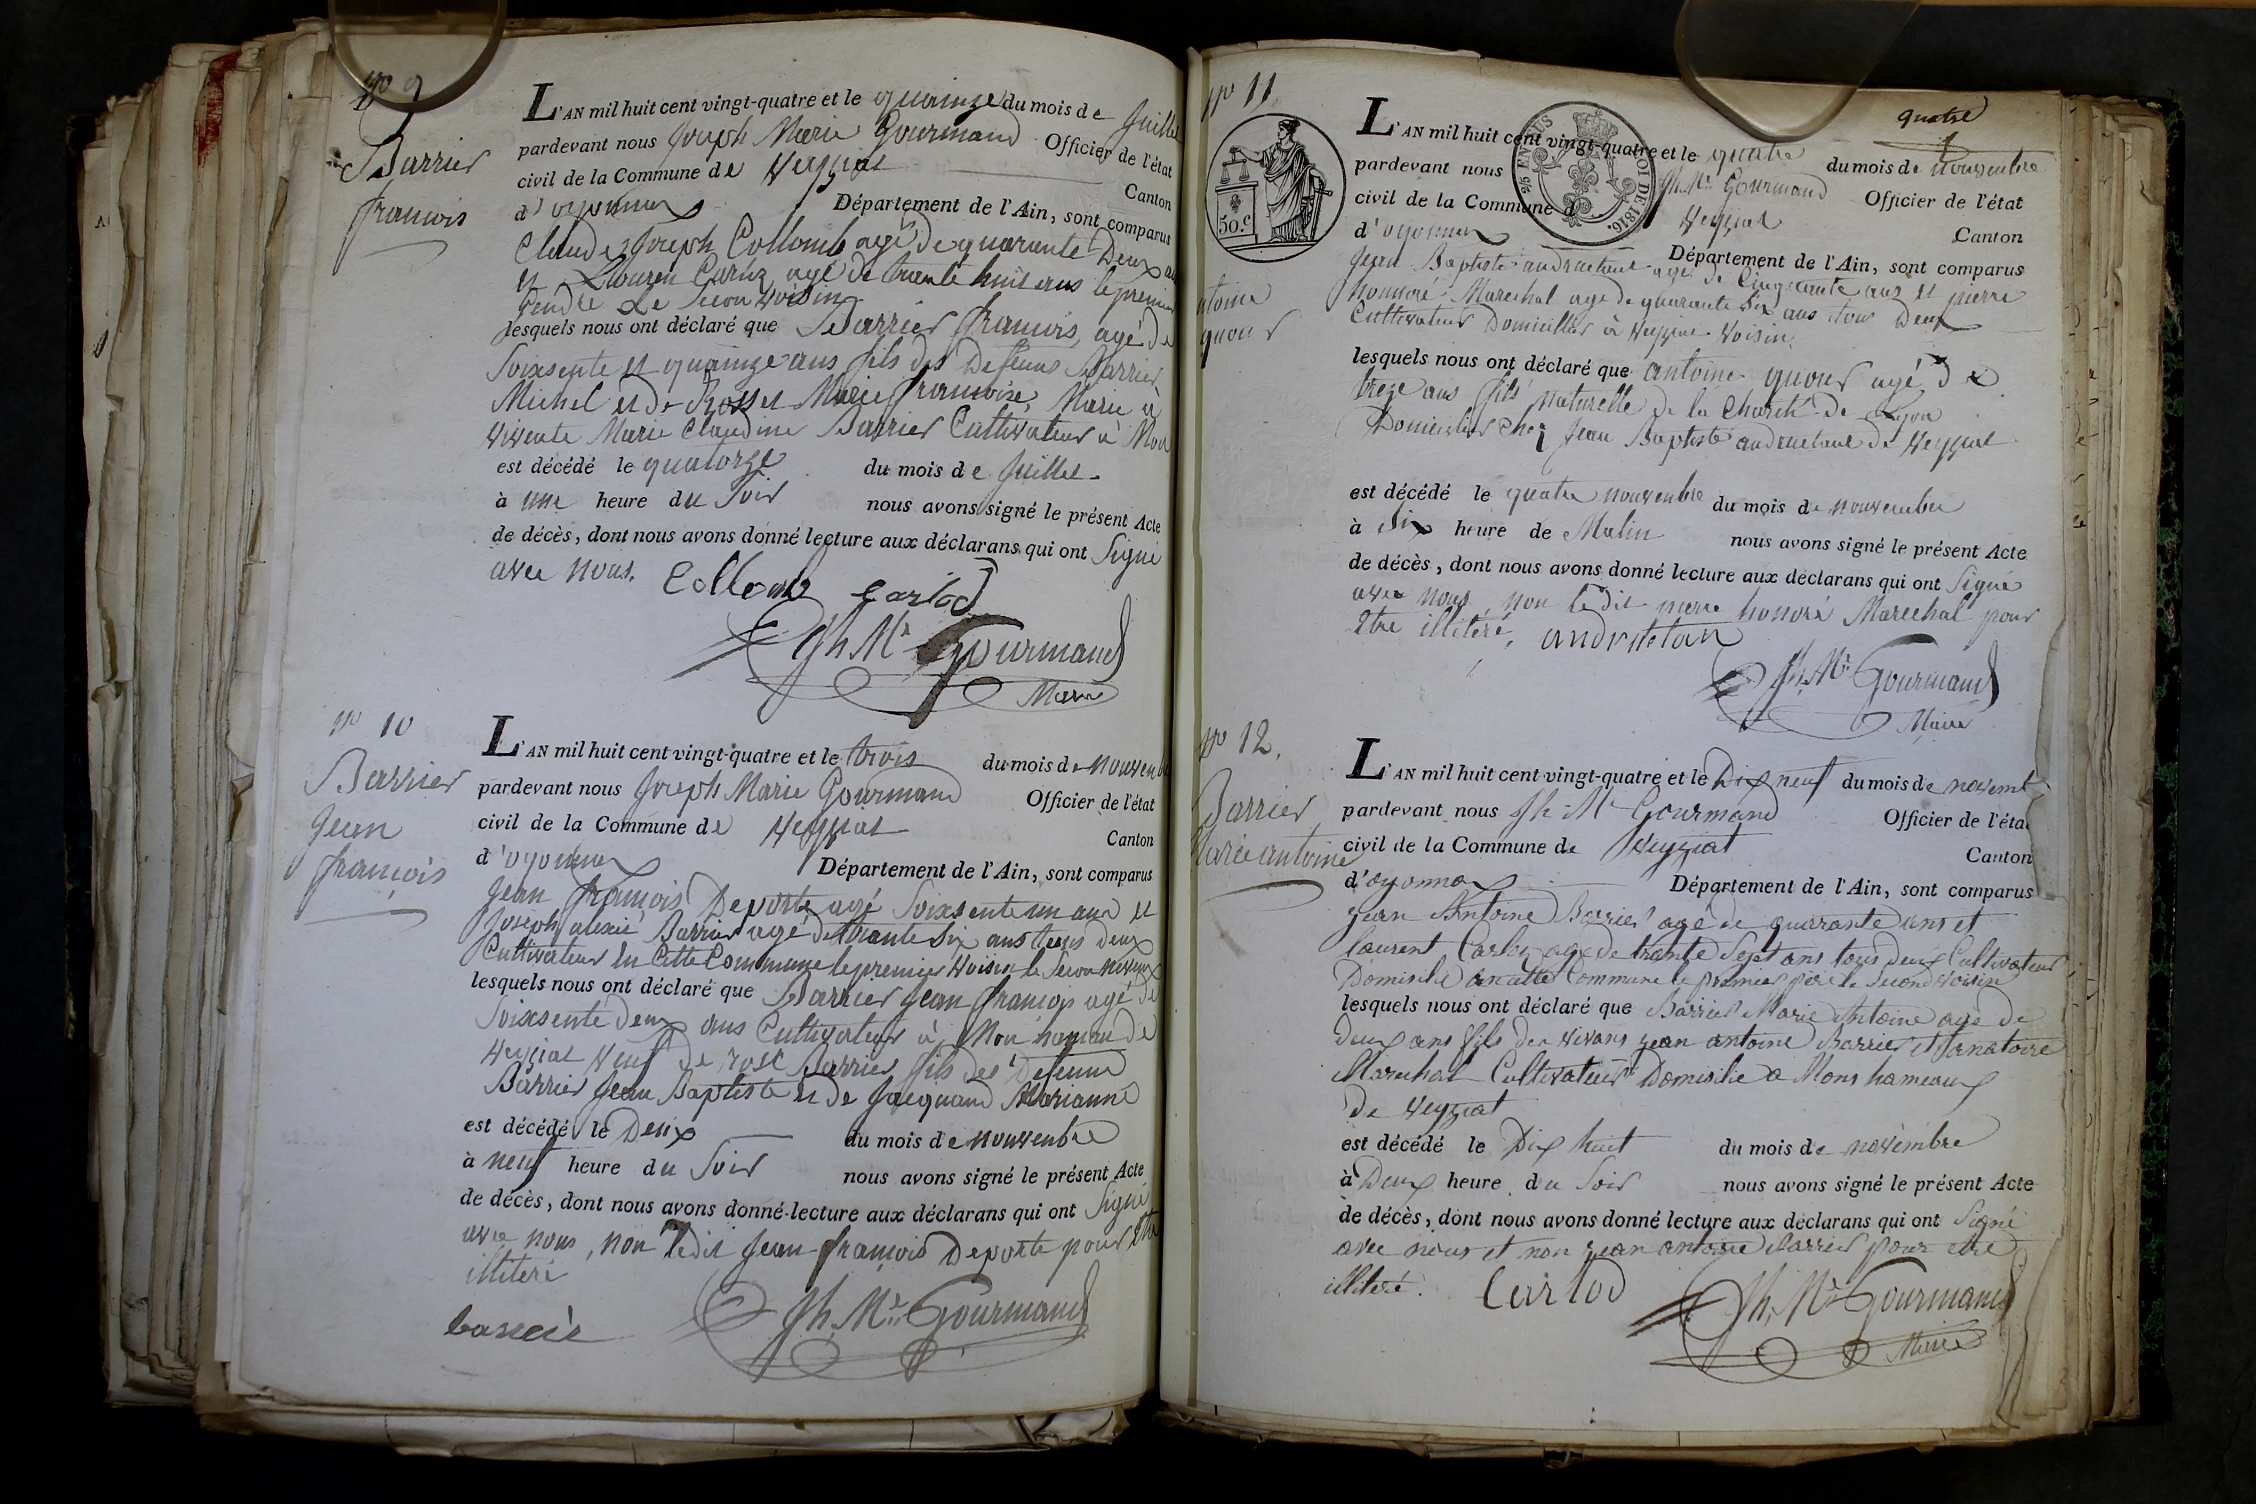 N° 9
Barrier
francois
L'AN mil huit cent vingt-quatre et le quainze du mois de Juillet
pardevant nous Joseph Marie Gourmand Officier de l'état
civil de la Commune de Veyziat Canton
d'oyonnax Département de l'Ain, sont comparus
Claude Joseph Collomb agé de quarante Deux ans
et Lauren agé de trante huit ans le premier
le Secon Voisin
lesquels nous ont déclaré que Barrier francois, agé de
Soixsente et quainze ans fils des Defeuns Barrier
Michel et de Rosset Marie francoise, Marie à
Vivente Marie Claudine Barrier Cultivateur à Mon
est décédé le quatorze du mois de Juillet
à une heure du Soir nous avons signé le présent Acte
de décès, dont nous avons donné lecture aux déclarans qui ont Signé
avec nous. Collomb Carlod
Jh Mie Gourmand
Maire
N° 10
Barrier
Jean
françois
L'AN mil huit cent vingt-quatre et le trois du mois de nouvenbre
pardevant nous Joseph Marie Gourmand Officier de l'état
civil de la Commune de Veyziat Canton
d'oyonnax Département de l'Ain, sont comparus
Jean françois Deporte agé Soixsente un ans et
Joseph alexié Barrier agé de trante Six ans tous deux
Cultivateur en Cette Commune le premier Voisin le Secon neveux
lesquels nous ont déclaré que Barrier Jean françois agé de
Soixsente deux ans Cultivateur à Mon hamau de
Veyziat Veuf de rose Barrier fils des Defeunt
Barrier Jean Baptiste et de Jacquand Marianne
est décédé le Deux du mois de nouvenbre
à neuf heure du Soir nous avons signé le présent Acte
de décès, dont nous avons donné lecture aux déclarans qui ont Signé
avec nous, non ledit Jean françois Deporte pour Etre
illiteré
Jh Mie Gourmand
N° 11
quatre
50 c.
ROI DE 1816.
antoine
quour
L'AN mil huit cent vingt-quatre et le quatre du mois de nouvenbre
pardevant nous Jh Mie Gourmand Officier de l'état
civil de la Commune de Veyziat Canton
d'oyonnax Département de l'Ain, sont comparus
Jean Baptiste andruetant agé de Cinquante ans et pierre
honnoré Marechal agé de quarante Six ans tous Deux
Cultivateur Domicilier à Veyziat Voisin.
lesquels nous ont déclaré que antoine quour agé de
treze ans fils naturelle de la Charité de Lyon
Domicilier chez Jean Baptiste andruetant de Veyziat
est décédé le quatre nouvenbre du mois de nouvenbre
à dix heure de Matin nous avons signé le présent Acte
de décès, dont nous avons donné lecture aux déclarans qui ont Signé
avec nous, non ledit pierre honoré Marechal pour
Etre illiteré, andruetan
Jh Mie Gourmand
Maire
N° 12.
Barrier
Marie antoine
L'AN mil huit cent vingt-quatre et le Dix neuf du mois de novembre
pardevant nous Jh Mie Gourmand Officier de l'état
civil de la Commune de Veyziat Canton
d'oyonnax Département de l'Ain, sont comparus
jean Antoine Barrier agé de quarante ans et
laurent Carlod agé de trante Sept ans tous deux Cultivateur
Domicilié en cette Commune le premier père le Second voisin
lesquels nous ont déclaré que Barrier Marie Antoine agé de
Deux ans fils des vivans jean antoine Barrier et
Marechal Cultivateur Domicilié a Mons hameaux
de Veyziat
est décédé le Dix huit du mois de novembre
à Deux heure du Soir nous avons signé le présent Acte
de décès, dont nous avons donné lecture aux déclarans qui ont Signé
avec nous et non jean antoine Barrier pour etre
illiteré. Carlod
Jh Mie Gourmand
Maire